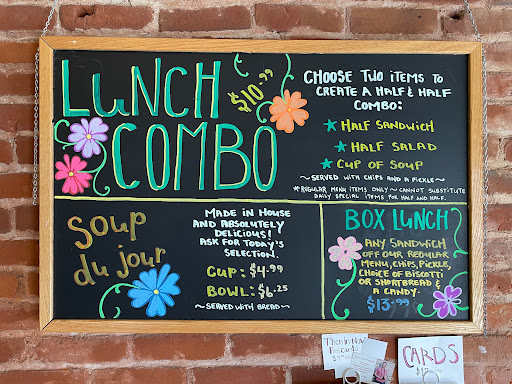 LUNCH
COMBO
$10.99
CHOOSE TWO ITEMS TO
CREATE A HALF & HALF
COMBO:
★ HALF SANDWICH
★ HALF SALAD
★ CUP OF SOUP
~SERVED WITH CHIPS AND A PICKLE~
*REGULAR MENU ITEMS ONLY ~ CANNOT SUBSTITUTE
DAILY SPECIAL ITEMS FOR HALF AND HALF.
Soup
du jour
MADE IN HOUSE
AND ABSOLUTELY
DELICIOUS!
ASK FOR TODAY'S
SELECTION.
CUP: $4.99
BOWL: $6.25
~SERVED WITH BREAD~
BOX LUNCH
ANY SANDWICH
OFF OUR REGULAR
MENU, CHIPS, PICKLE,
CHOICE OF BISCOTTI
OR SHORTBREAD &
A CANDY.
$13.99
Then in Now
Postcards
CARDS